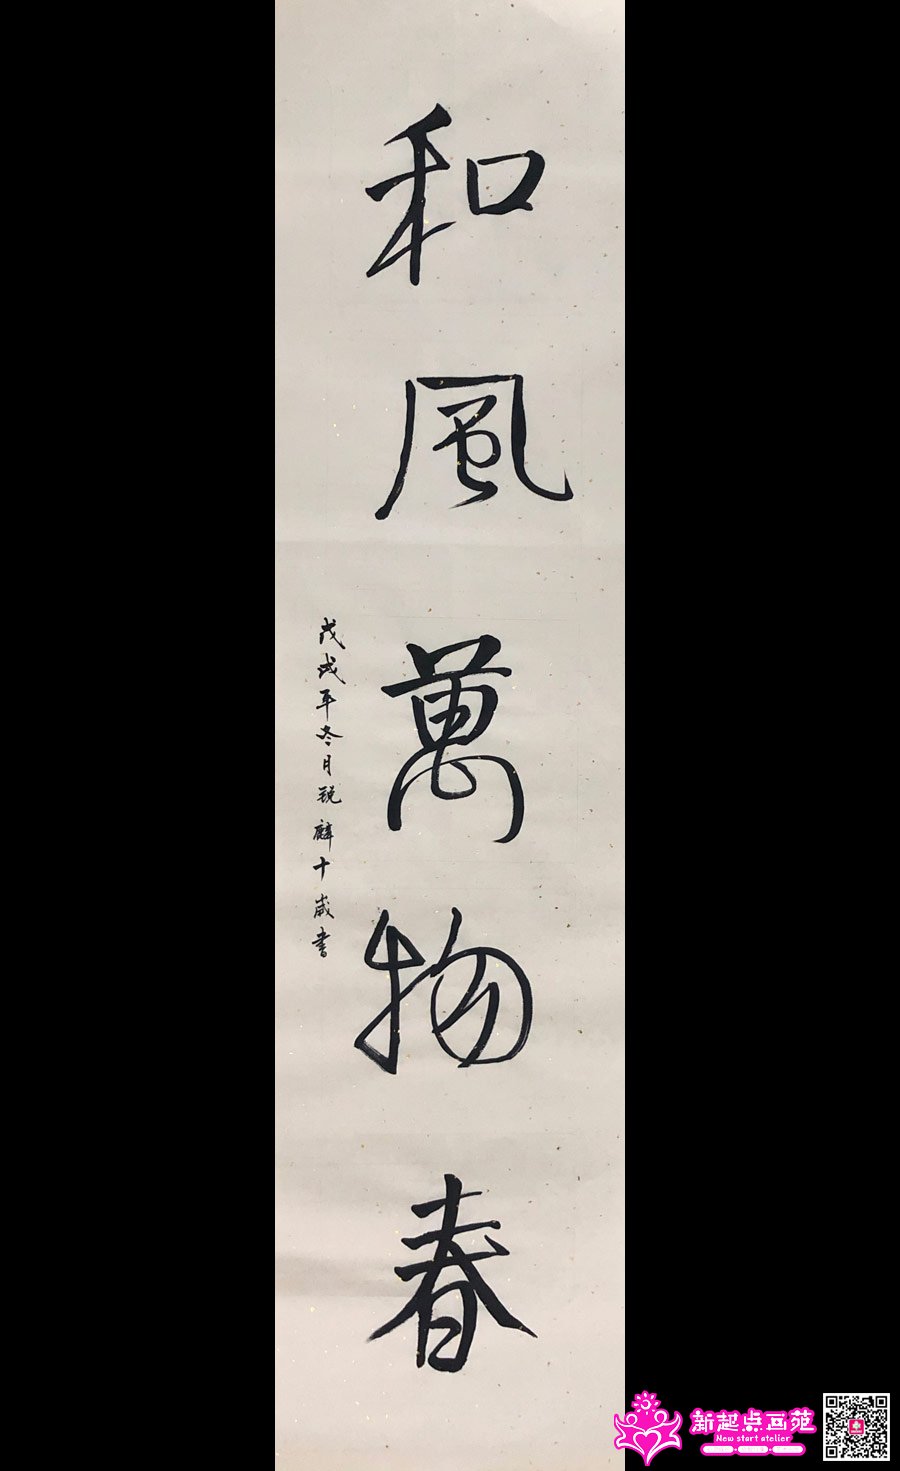 和風萬物春
戊戌年冬月锐麟十歲書
新起点画苑
New start atelier